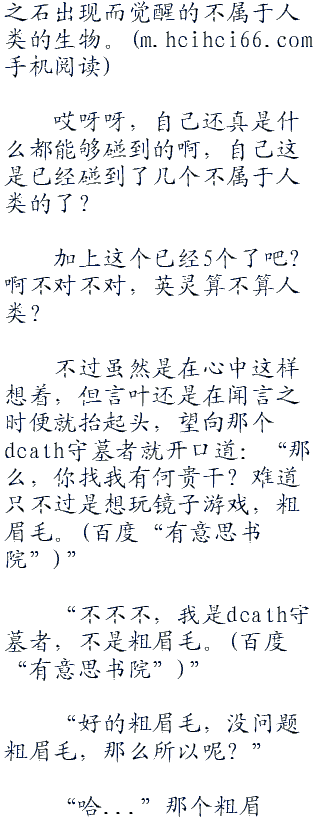 之石出现而觉醒的不属于人
类的生物。(m.hcihci66.com
手机阅读)
哎呀呀，自己还真是什
么都能够碰到的啊，自己这
是已经碰到了几个不属于人
类的了？
加上这个已经5个了吧？
啊不对不对，英灵算不算人
类？
不过虽然是在心中这样
想着，但言叶还是在闻言之
时便就抬起头，望向那个
dcath守墓者就开口道：“那
么，你找我有何贵干？难道
只不过是想玩镜子游戏，粗
眉毛。(百度“有意思书
院”)”
“不不不，我是dcath守
墓者，不是粗眉毛。(百度
“有意思书院”)”
“好的粗眉毛，没问题
粗眉毛，那么所以呢？”
“哈...”那个粗眉